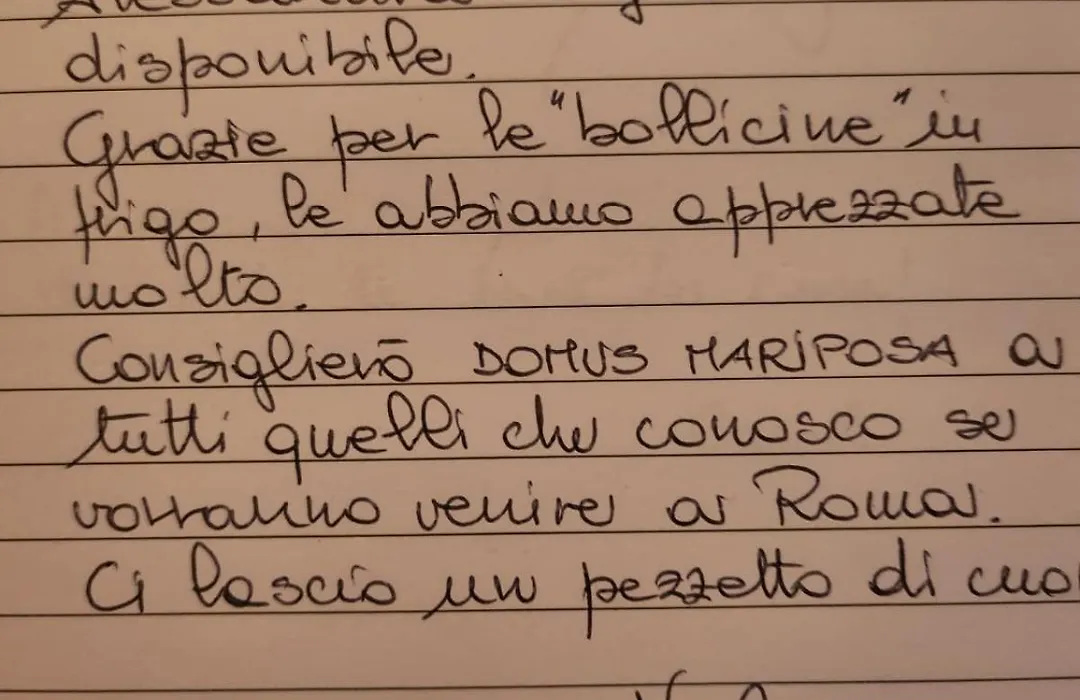 disponibile.
Grazie per le "bollicine" in
frigo, le abbiamo apprezzate
molto.
Consiglierò DOMUS MARIPOSA a
tutti quelli che conosco se
vorranno venire a Roma.
Ci lascio un pezzetto di cuo